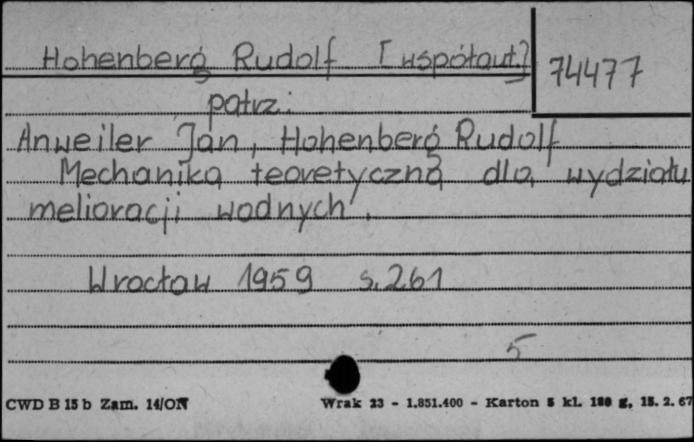 Hohenberg Rudolf [współaut.]
74477
patrz:
Anweiler Jan, Hohenberg Rudolf
Mechanika teoretyczna dla wydziału
melioracji wodnych.
Wrocław 1959 s. 261
5
CWD B 15 b Zam. 14/ON
Wrak 23 - 1.851.400 - Karton 5 kl. 180 g, 15. 2. 67